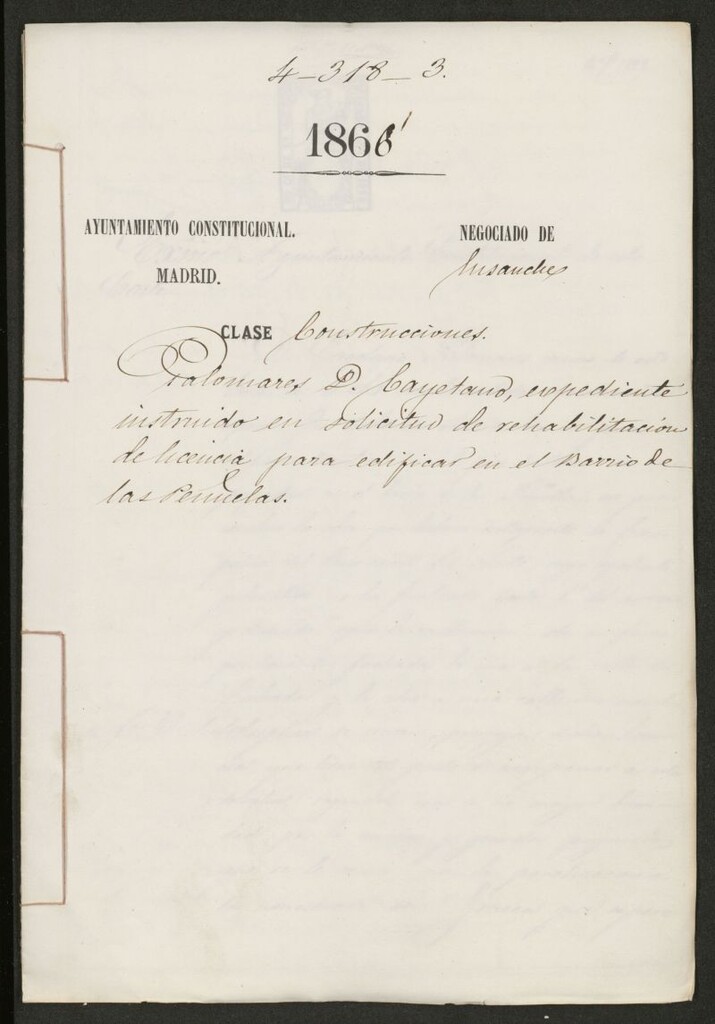 4-318-3.
1866
AYUNTAMIENTO CONSTITUCIONAL.
MADRID.
NEGOCIADO DE
Ensanche
CLASE Construcciones.
Palomares, D. Cayetano, expediente
instruido en solicitud de rehabilitacion
de licencia para edificar en el Barrio de
las Peñuelas.